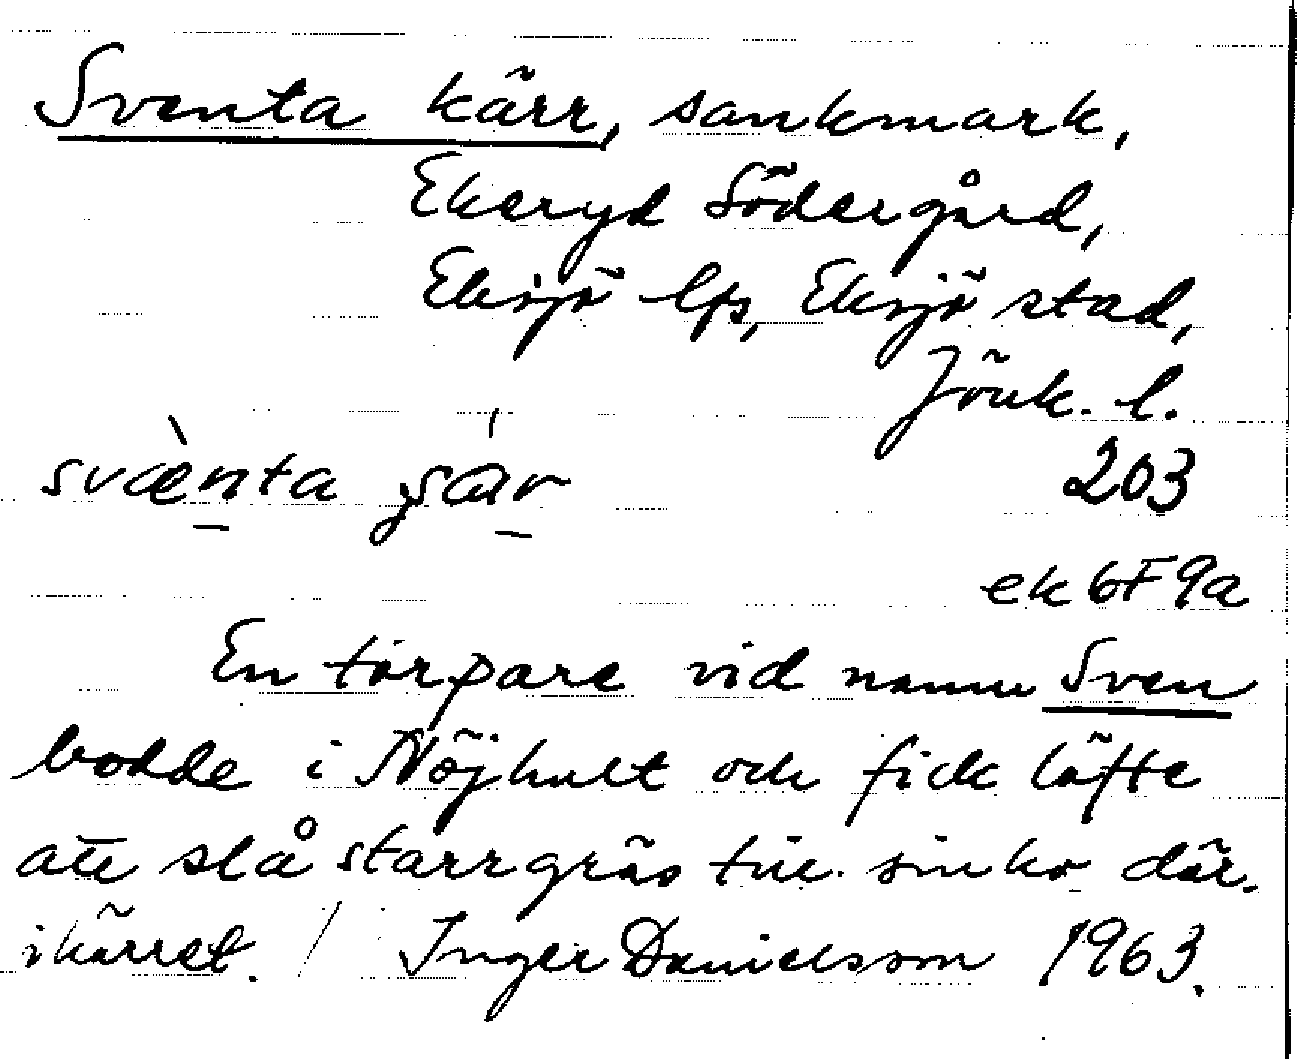 Sventa kärr, sankmark,
Ekeryd Södergård,
Eksjö lfs, Eksjö stad,
Jönk. l.
svænta
203
ek 6F 9a
En torpare vid namn Sven
bodde i Nöjhult och fick löfte
att slå starrgräs till sin ko där
i kärret. / Inger Danielsson 1963.